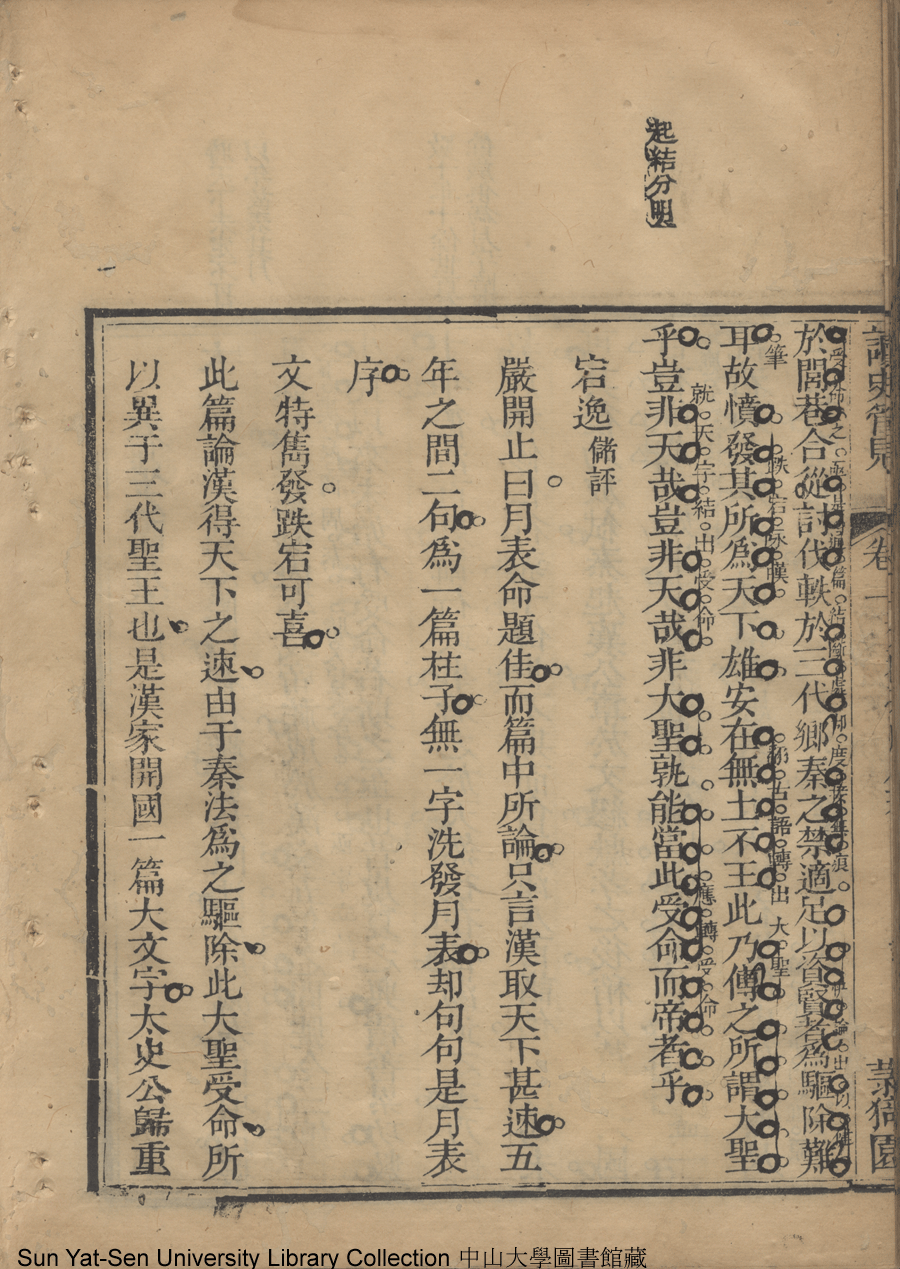 起結分明
讀史管見
卷一
菉猗園
於閭巷合從討伐軼於三代鄉秦之禁適足以資賢者爲驅除難
耳故憤發其所爲天下雄安在無土不王此乃傳之所謂大聖
筆
跌宕咏嘆
翻古語轉出大聖
乎豈非天哉豈非天哉非大聖孰能當此受命而帝者乎
就天字結出受命
應轉受命
宕逸 儲評
嚴開止曰月表命題佳而篇中所論只言漢取天下甚速五
年之間二句爲一篇柱子無一字洗發月表却句句是月表
序
文特雋發跌宕可喜
此篇論漢得天下之速由于秦法爲之驅除此大聖受命所
以異于三代聖王也是漢家開國一篇大文字太史公歸重
Sun Yat-Sen University Library Collection 中山大學圖書館藏